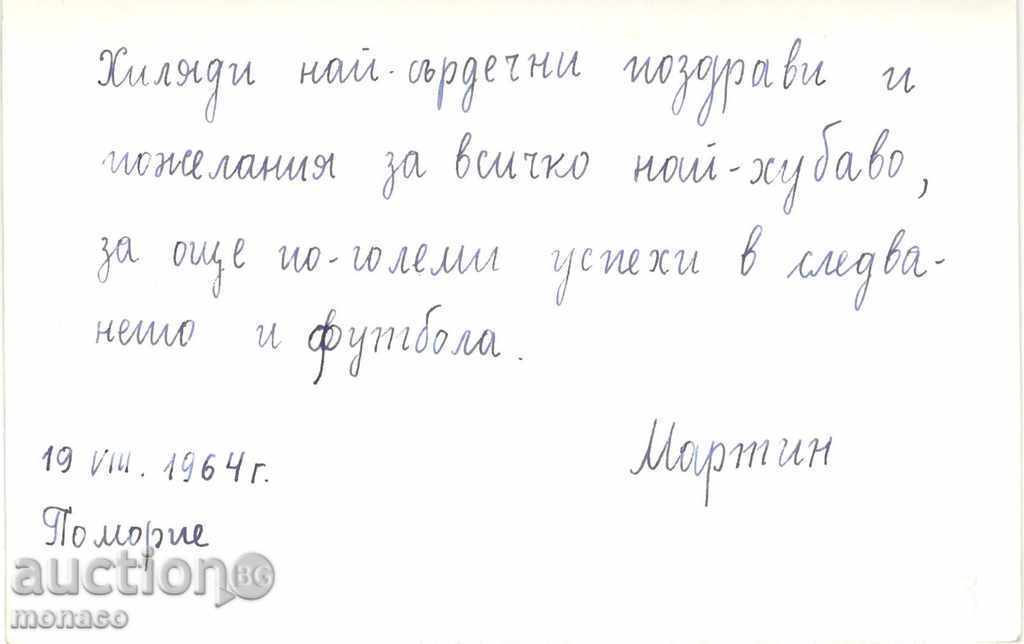 Хиляди най-сърдечни поздрави и
пожелания за всичко най-хубаво,
за още по-големи успехи в следва-
нето и футбола.
Мартин
19 VIII. 1964 г.
Поморие
auction BG
monaco